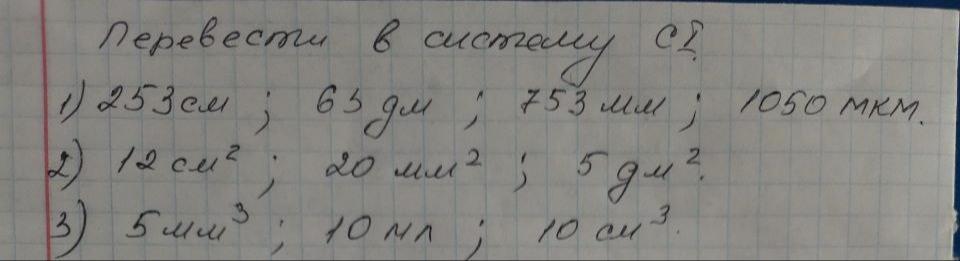 Перевести в систему СI.
1) 253 см ; 63 дм ; 753 мм ; 1050 мкм.
2) 12 см² ; 20 мм² ; 5 дм².
3) 5 мм³ ; 10 мл ; 10 см³.